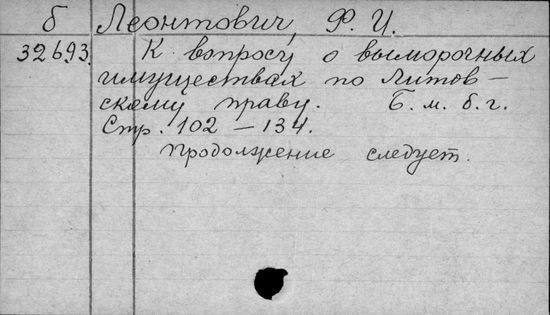 б Леонтович, Ф. И.
32693. К вопросу о выморочных
имуществах по Литов-
скому праву. Б. м. б. г.
Стр. 102 – 134.
Продолжение следует.